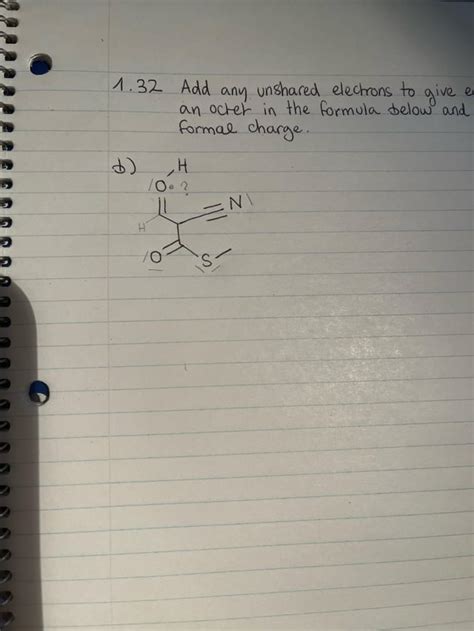 1.32 Add any unshared electrons to give
an octet in the formula below and
formal charge.
b) H
O ?
N
H
O
S